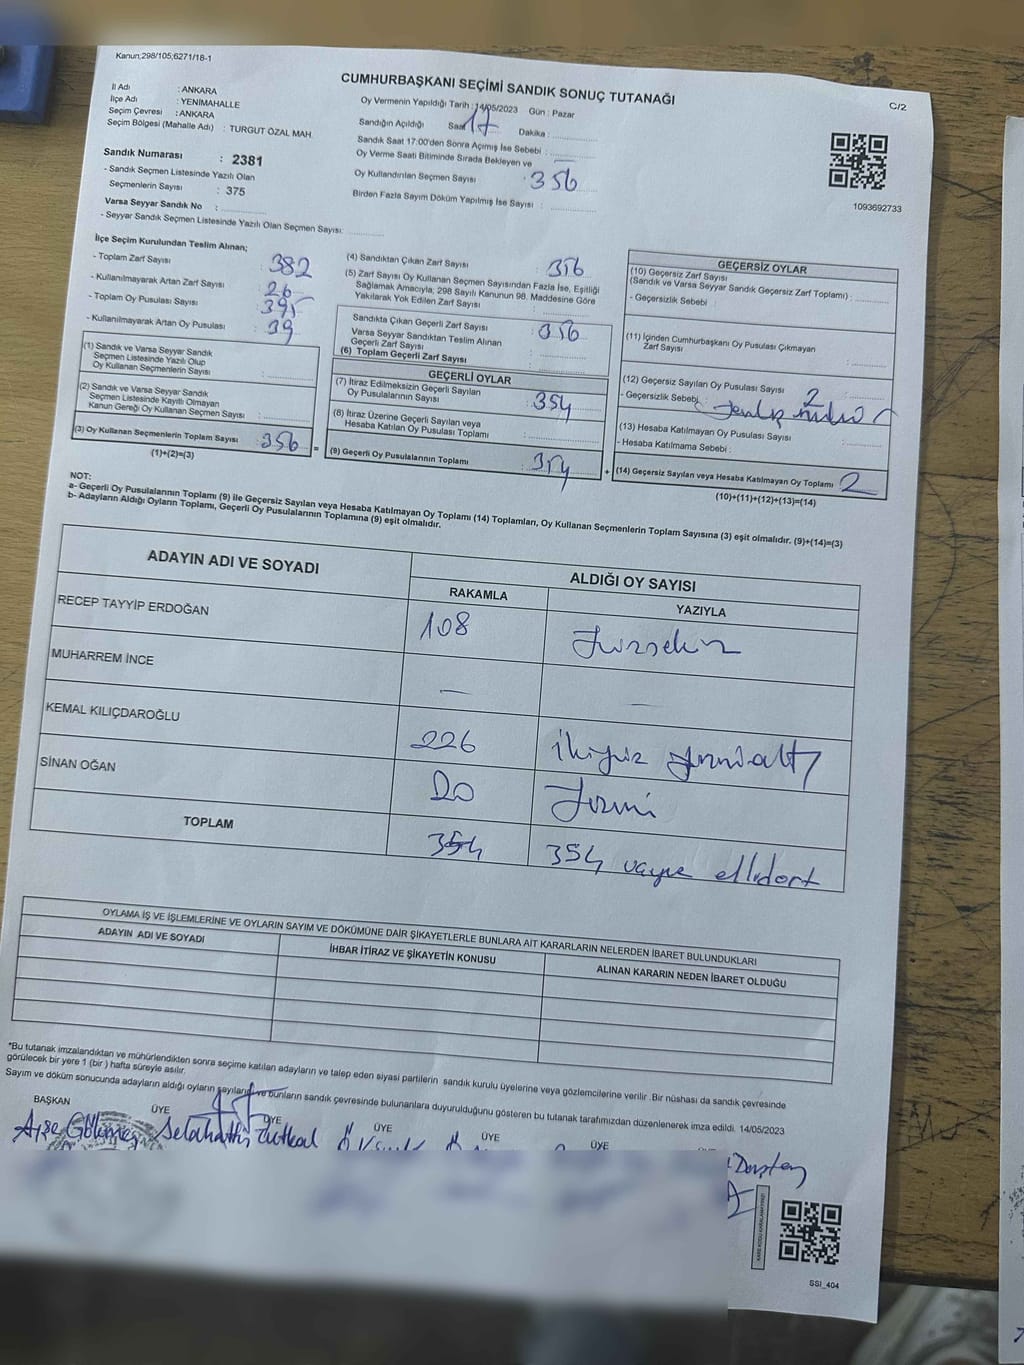 Kanun;298/105;6271/18-1
CUMHURBAŞKANI SEÇİMİ SANDIK SONUÇ TUTANAĞI
C/2
İl Adı : ANKARA
İlçe Adı : YENİMAHALLE
Seçim Çevresi : ANKARA
Seçim Bölgesi (Mahalle Adı) : TURGUT ÖZAL MAH.
Oy Vermenin Yapıldığı Tarih : 14/05/2023 Gün : Pazar
Sandığın Açıldığı Saat 17 Dakika :
Sandık Saat 17:00'den Sonra Açımış İse Sebebi :
Oy Verme Saati Bitiminde Sırada Bekleyen ve
Oy Kullandırılan Seçmen Sayısı : 356
Birden Fazla Sayım Döküm Yapılmış İse Sayısı :
1093692733
Sandık Numarası : 2381
- Sandık Seçmen Listesinde Yazılı Olan
Seçmenlerin Sayısı : 375
Varsa Seyyar Sandık No :
- Seyyar Sandık Seçmen Listesinde Yazılı Olan Seçmen Sayısı:
İlçe Seçim Kurulundan Teslim Alınan;
- Toplam Zarf Sayısı : 382
- Kullanılmayarak Artan Zarf Sayısı : 26
- Toplam Oy Pusulası Sayısı : 395
- Kullanılmayarak Artan Oy Pusulası : 39
(1) Sandık ve Varsa Seyyar Sandık
Seçmen Listesinde Yazılı Olup
Oy Kullanan Seçmenlerin Sayısı :
(2) Sandık ve Varsa Seyyar Sandık
Seçmen Listesinde Kayıtlı Olmayan
Kanun Gereği Oy Kullanan Seçmen Sayısı :
(3) Oy Kullanan Seçmenlerin Toplam Sayısı : 356 =
(1)+(2)=(3)
(4) Sandıktan Çıkan Zarf Sayısı : 356
(5) Zarf Sayısı Oy Kullanan Seçmen Sayısından Fazla İse, Eşitliği
Sağlamak Amacıyla, 298 Sayılı Kanunun 98. Maddesine Göre
Yakılarak Yok Edilen Zarf Sayısı :
Sandıkta Çıkan Geçerli Zarf Sayısı : 356
Varsa Seyyar Sandıktan Teslim Alınan
Geçerli Zarf Sayısı :
(6) Toplam Geçerli Zarf Sayısı :
GEÇERLİ OYLAR
(7) İtiraz Edilmeksizin Geçerli Sayılan
Oy Pusulalarının Sayısı : 354
(8) İtiraz Üzerine Geçerli Sayılan veya
Hesaba Katılan Oy Pusulası Toplamı :
(9) Geçerli Oy Pusulalarının Toplamı : 354 +
GEÇERSİZ OYLAR
(10) Geçersiz Zarf Sayısı
(Sandık ve Varsa Seyyar Sandık Geçersiz Zarf Toplamı) :
- Geçersizlik Sebebi :
(11) İçinden Cumhurbaşkanı Oy Pusulası Çıkmayan
Zarf Sayısı :
(12) Geçersiz Sayılan Oy Pusulası Sayısı : 2
- Geçersizlik Sebebi :
(13) Hesaba Katılmayan Oy Pusulası Sayısı :
- Hesaba Katılmama Sebebi :
(14) Geçersiz Sayılan veya Hesaba Katılmayan Oy Toplamı : 2
(10)+(11)+(12)+(13)=(14)
NOT:
a- Geçerli Oy Pusulalarının Toplamı (9) ile Geçersiz Sayılan veya Hesaba Katılmayan Oy Toplamı (14) Toplamları, Oy Kullanan Seçmenlerin Toplam Sayısına (3) eşit olmalıdır. (9)+(14)=(3)
b- Adayların Aldığı Oyların Toplamı, Geçerli Oy Pusulalarının Toplamına (9) eşit olmalıdır.
ADAYIN ADI VE SOYADI
ALDIĞI OY SAYISI
RAKAMLA YAZIYLA
RECEP TAYYİP ERDOĞAN 108 Yüzsekiz
MUHARREM İNCE — —
KEMAL KILIÇDAROĞLU 226 ikiyüz yirmialtı
SİNAN OĞAN 20 Yirmi
TOPLAM 354 354 üçyüz ellidört
OYLAMA İŞ VE İŞLEMLERİNE VE OYLARIN SAYIM VE DÖKÜMÜNE DAİR ŞİKAYETLERLE BUNLARA AİT KARARLARIN NELERDEN İBARET BULUNDUKLARI
ADAYIN ADI VE SOYADI İHBAR İTİRAZ VE ŞİKAYETİN KONUSU ALINAN KARARIN NEDEN İBARET OLDUĞU
*Bu tutanak imzalandıktan ve mühürlendikten sonra seçime katılan adayların ve talep eden siyasi partilerin sandık kurulu üyelerine veya gözlemcilerine verilir .Bir nüshası da sandık çevresinde
görülecek bir yere 1 (bir ) hafta süreyle asılır.
Sayım ve döküm sonucunda adayların aldığı oyların sayılarının ve bunların sandık çevresinde bulunanlara duyurulduğunu gösteren bu tutanak tarafımızdan düzenlenerek imza edildi. 14/05/2023
BAŞKAN ÜYE ÜYE ÜYE ÜYE ÜYE
Ayşe Selahattin
SSI_404